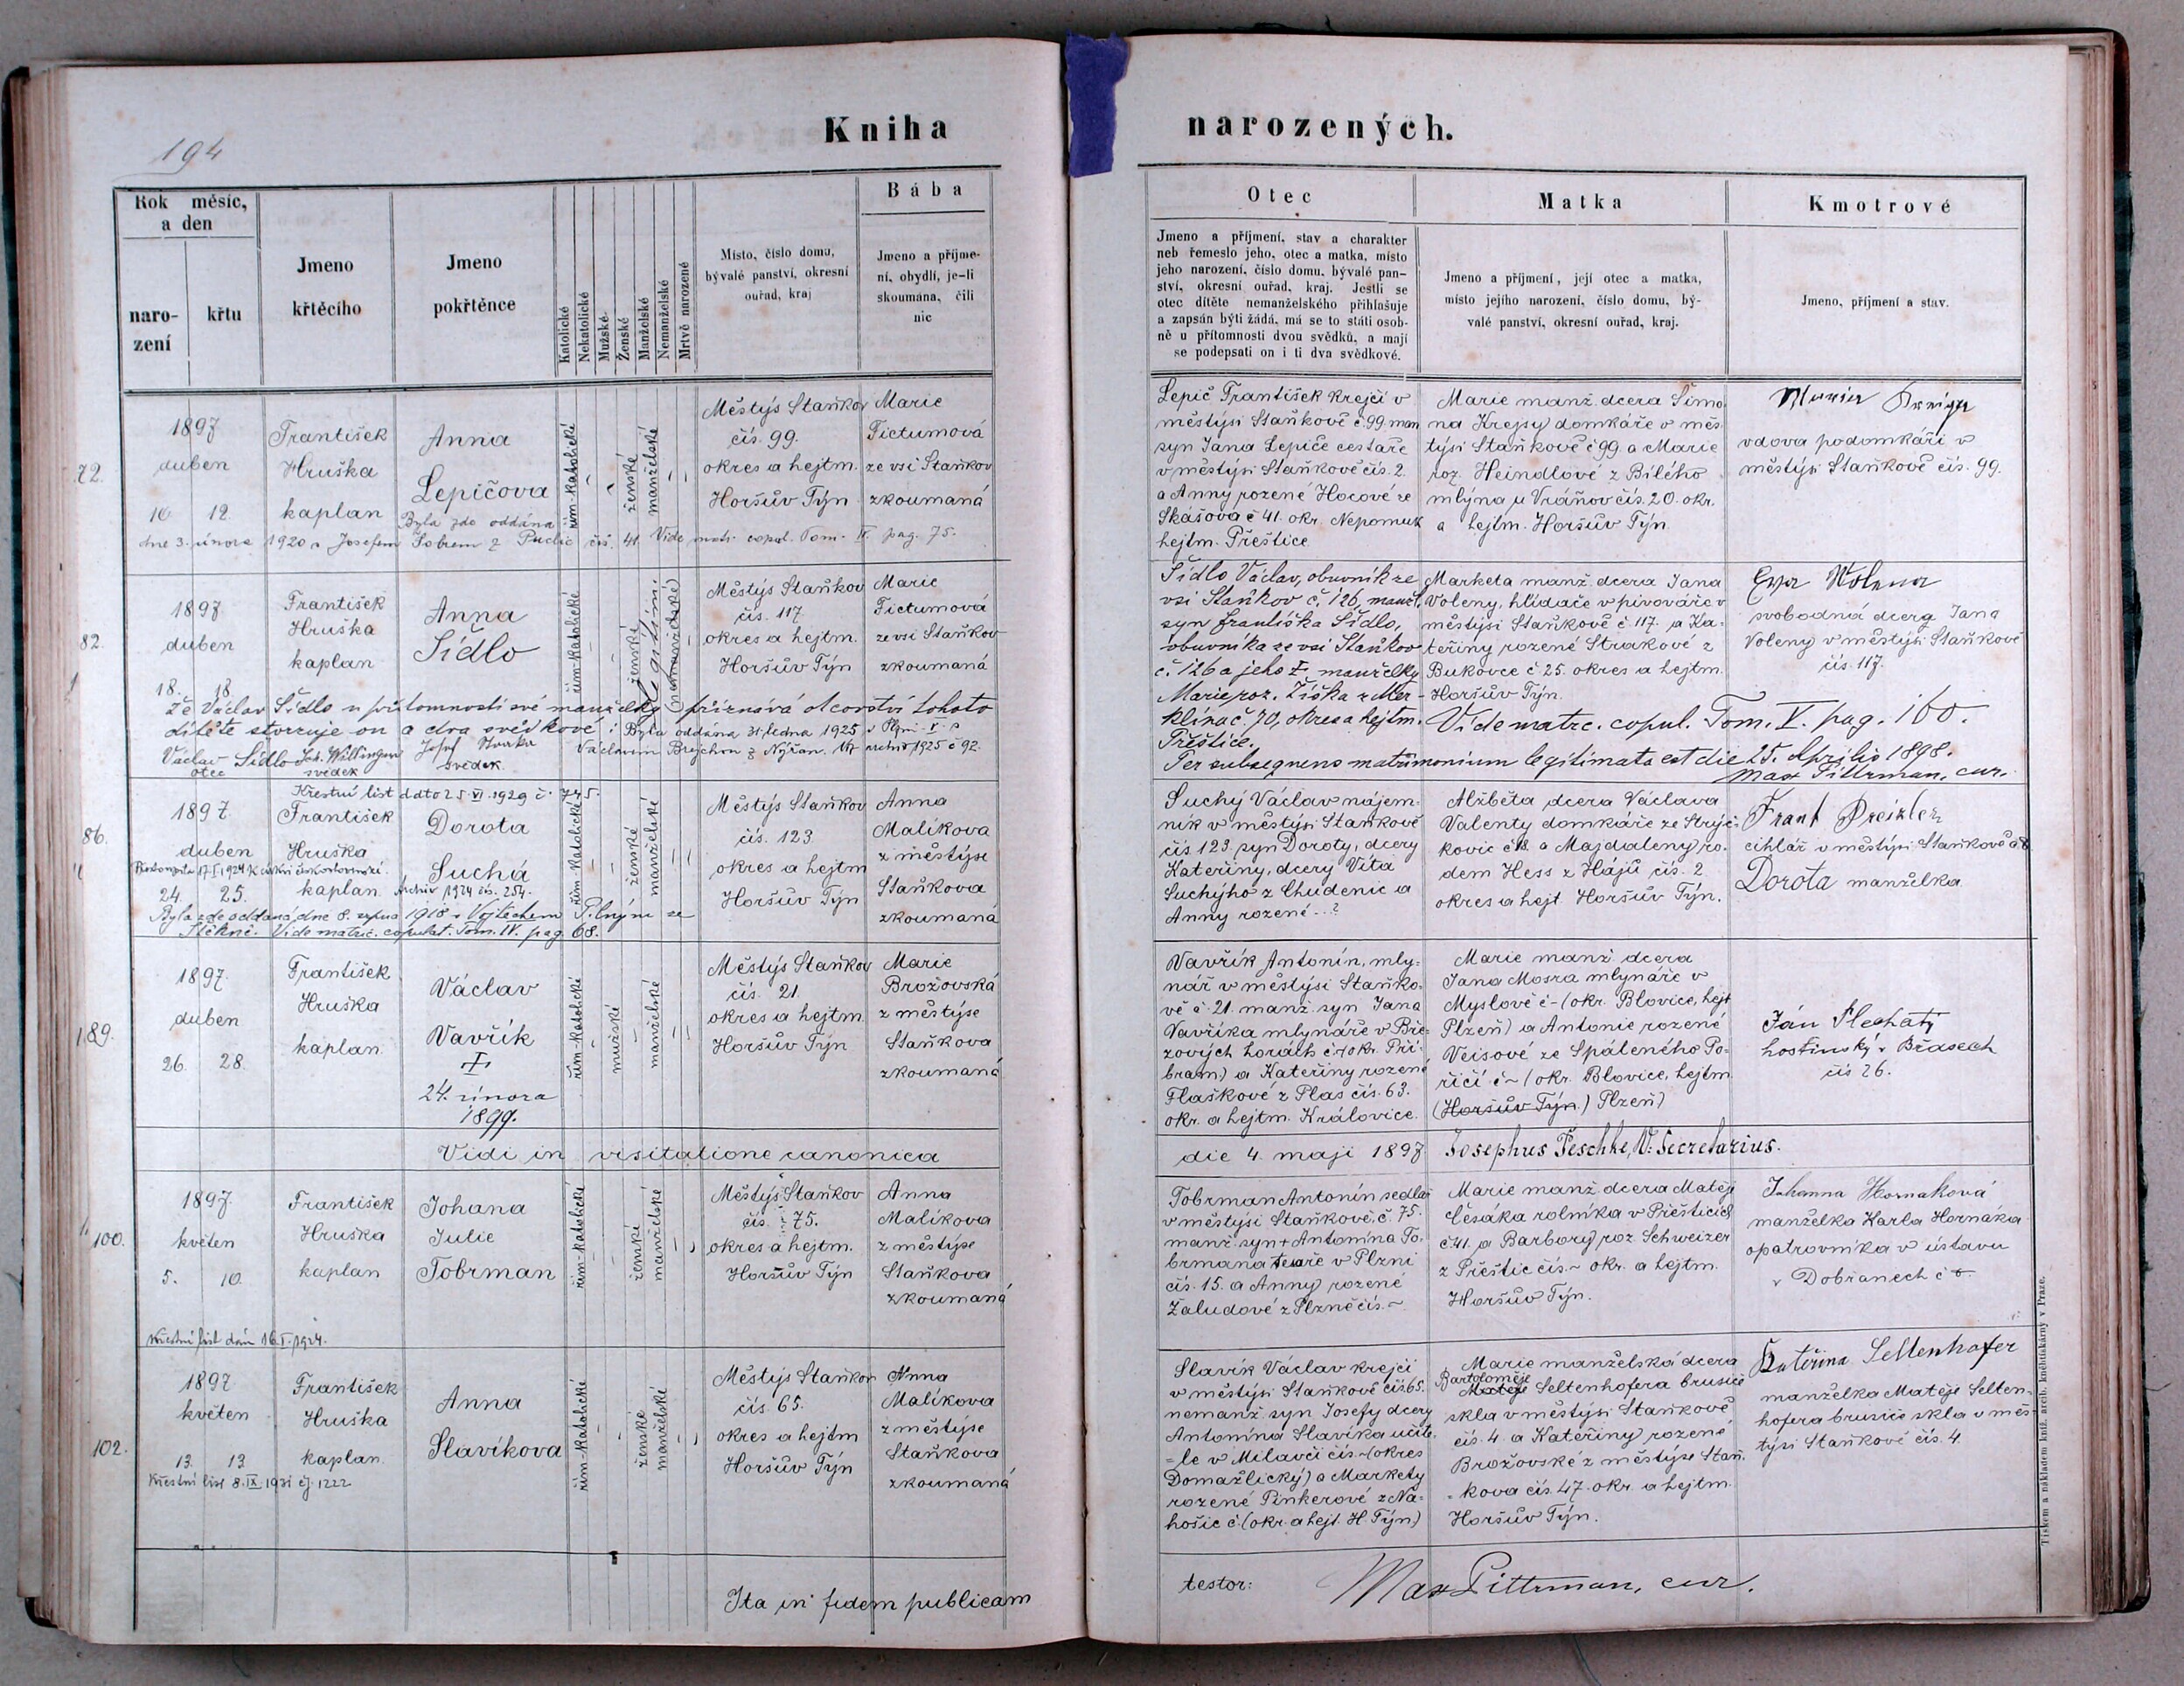 194
Kniha
narozených.
Rok měsíc,
a den
naro-
zení
křtu
Jmeno
křtěcího
Jmeno
pokřtěnce
Katolické
Nekatolické
Mužské
Ženské
Manželské
Nemanželské
Mrtvě narozené
Místo, číslo domu,
bývalé panství, okresní
ouřad, kraj
Bába
Jmeno a příjme-
ní, obydlí, je-li
skoumána, čili
nic
Otec
Jmeno a příjmení, stav a charakter
neb řemeslo jeho, otec a matka, místo
jeho narození, číslo domu, bývalé pan-
ství, okresní ouřad, kraj. Jestli se
otec dítěte nemanželského přihlašuje
a zapsán býti žádá, má se to státi osob-
ně u přítomnosti dvou svědků, a mají
se podepsati on i ti dva svědkové.
Matka
Jmeno a příjmení, její otec a matka,
místo jejího narození, číslo domu, bý-
valé panství, okresní ouřad, kraj.
Kmotrové
Jmeno, příjmení a stav.
72.
1897
duben
10. 12.
František
Hruška
kaplan
Anna
Lepičova
řím-katolické
ženské
manželské
Městýs Staňkov
čís. 99.
okres a hejtm.
Horšův Týn
Marie
Fictumová
ze vsi Staňkov
zkoumaná
Byla zde oddána
dne 3. února 1920 s Josefem Šobrem z Puclic čís. 41. Vide matr. copul. Tom. IV. pag. 75.
Lepič František krejčí v
městysi Staňkově č. 99. man
syn Jana Lepiče cestaře
v městysi Staňkově čís. 2.
a Anny rozené Hocové ze
Skašova č 41. okr. Nepomuk
hejtm. Přeštice
Marie manž. dcera Šimo
na Krejsy domkáře v měs
týsi Staňkově č 99. a Marie
roz. Heindlové z Bílého
mlýna u Vráňov čís. 20. okr.
a hejtm. Horšův Týn.
vdova podomkáři v
městýsi Staňkově čís. 99.
82.
1897
duben
18. 18.
František
Hruška
kaplan
Anna
Sídlo
řím-katolické
ženské
Legitimi.
(nemanželské)
Městýs Staňkov
čís. 117
okres a hejtm.
Horšův Týn
Marie
Fictumová
ze vsi Staňkov
zkoumaná
Že Václav Sídlo u přítomnosti své manželky přiznává otcovství tohoto
dítěte stvrzuje on a dva svědkové: Byla oddána 31. ledna 1925 v Plzni
Václav Sídlo
otec
svědek
Josef
svědek.
Václavem Brejchou z Nýřan.
Sídlo Václav, obuvník ze
vsi Staňkov č. 126, manž.
syn Františka Sídlo,
obuvníka ze vsi Staňkov
č. 126 a jeho I. manželky
Marie roz. Žiška z Mer-
klína č. 70, okres a hejtm.
Přeštice.
Marketa manž. dcera Jana
Voleny, hlídače v pivováře v
městysi Staňkově č 117. a Ka-
teřiny rozené Strakové z
Bukovce č 25. okres a hejtm.
Horšův Týn.
Vide matrc. copul. Tom. V. pag. 160.
Per subsequens matrimonium legitimata est die 25. Aprilis 1898.
Max Pittrman, cur.
svobodná dcera Jana
Voleny v městýsi Staňkově
čís. 117.
86.
Křestní list ddto 25. VI. 1929 č. 745.
1897.
duben
24. 25.
František
Hruška
kaplan
Dorota
Suchá
řím-katolické
ženské
manželské
Městýs Staňkov
čís. 123
okres a hejtm
Horšův Týn
Anna
Malíkova
z městýse
Staňkova
zkoumaná
Archiv 1924 čís. 254.
Byla zde oddaná dne 8. srpna 1918 s Vojtěchem Pilným ze
Stěkně. Vide matric. copulat. Tom. IV. pag. 68.
Suchý Václav nájem-
ník v městýsi Staňkově
čís. 123 syn Doroty, dcery
Kateřiny, dcery Víta
Suchýho z Chudenic a
Anny rozené ..?
Alžběta dcera Václava
Valenty domkáře ze Strýč-
kovic č 18. a Magdaleny ro-
dem Hess z Hájů čís. 2
okres a hejt Horšův Týn.
cihlář v městýsi Staňkově
Dorota manželka
89.
1897.
duben
26. 28.
František
Hruška
kaplan
Václav
Vavřík
†
24. února
1899.
řím-katolické
mužské
manželské
Městýs Staňkov
čís. 21.
okres a hejtm.
Horšův Týn
Marie
Brožovská
z městýse
Staňkova
zkoumaná
Vavřík Antonín, mly-
nář v městýsi Staňko-
vě č. 21. manž. syn Jana
Vavříka mlynáře v Bře-
zových horách č-(okr. Pří-
bram.) a Kateřiny rozené
Flaškové z Plas čís. 63.
okr. a hejtm. Kralovice.
Marie manž. dcera
Jana Mosra mlynáře v
Myslově č-(okr. Blovice, hejt
Plzeň) a Antonie rozené
Veisové ze Spáleného Po-
říčí č-(okr. Blovice, hejtm
(Horšův Týn.) Plzeň)
Ján Plechatý
hostinský v Břasech
čís 26.
Vidi in visitatione canonica
die 4. maji 1897 Josephus Peschke, V. Secretarius.
100.
1897.
květen
5. 10.
František
Hruška
kaplan
Johana
Julie
Tobrman
řím-katolické
ženské
manželské
Městýs Staňkov
čís. 75.
okres a hejtm.
Horšův Týn
Anna
Malíkova
z městýse
Staňkova
zkoumaná
Křestní list dán 16. I. 1924.
Tobrman Antonín sedlář
v městýsi Staňkově, č. 75.
manž. syn + Antonína To-
brmana tesaře v Plzni
čís. 15. a Anny rozené
Žaludové z Plzně čís. ~
Marie manž. dcera Matěje
Česáka rolníka v Přešticích
č 41. a Barbory roz Schweizer
z Přeštic čís. ~ okr. a hejtm.
Horšův Týn.
Johanna Hornaková
manželka Karla Hornáka
opatrovníka v ústavu
v Dobřanech č
102.
1897
květen
13. 13
František
Hruška
kaplan
Anna
Slavíkova
řím-katolické
ženské
manželské
Městýs Staňkov
čís. 65.
okres a hejtm
Horšův Týn
Anna
Malíkova
z městýse
Staňkova
zkoumaná
Křestní list 8. IX. 1931 čj. 1222
Slavík Václav krejčí
v městýsi Staňkově čís 65.
nemanž. syn Josefy dcery
Antonína Slavíka učite-
le v Milavči čís. ~(okres
Domažlický) a Markety
rozené Pinkerové z Na-
hošic č.(okr. a hejt. H. Týn)
Marie manželská dcera
Bartoloměje
Matěje Seltenhofera brusiče
skla v městýsi Staňkově
čís. 4 a Kateřiny rozené
Brožovské z městýse Staň-
kova čís. 47. okr. a hejtm.
Horšův Týn.
Kateřina Seltenhofer
manželka Matěje Selten-
hofera brusiče skla v měs-
týsi Staňkově čís. 4.
Ita in fidem publicam
testor: Max Pittrman, cur.
Tiskem a nákladem kníž. arcib. knihtiskárny v Praze.